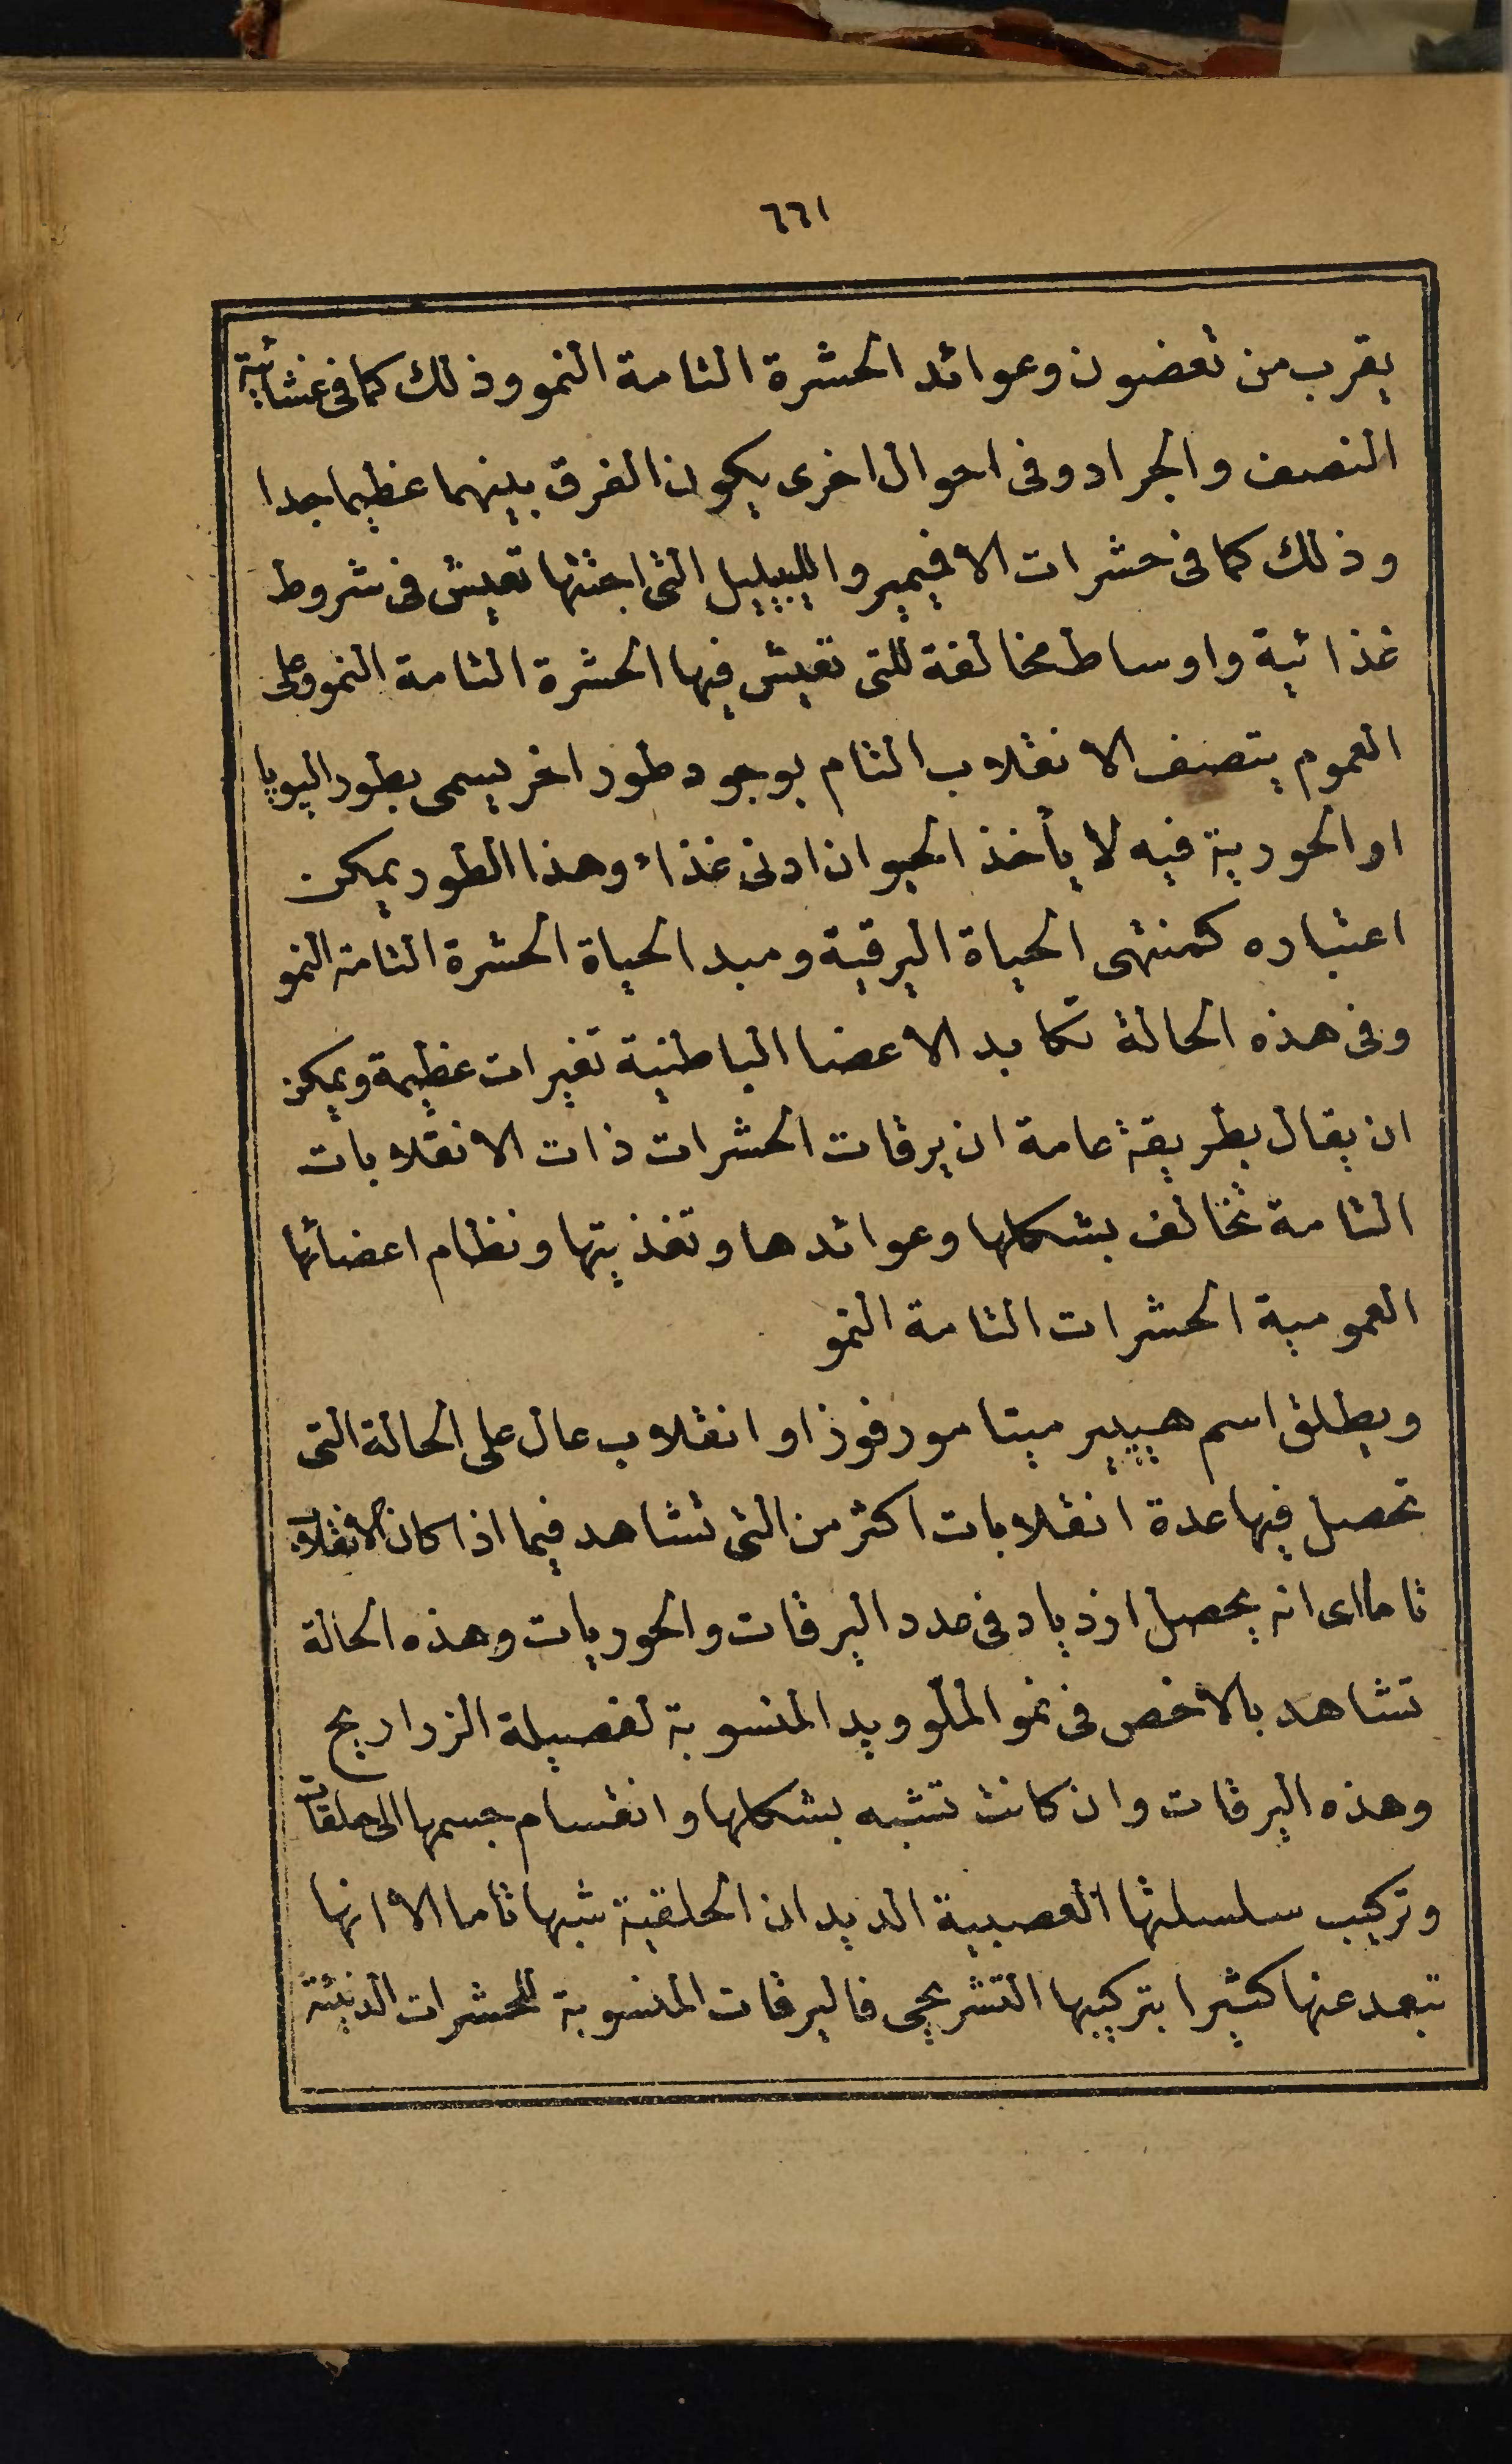 ٦٦١
يقرب من تعضون وعوائد الحشرة التامة النمو وذلك كما فى غشائية
النصف والجراد وفى احوال اخرى يكون الفرق بينهما عظيما جدا
وذلك كما فى حشرات الافيمير والليبيليل التى اجنتها تعيش فى شروط
غذائية واوساط مخالفة للتى تعيش فيها الحشرة التامة النمو وعلى
العموم يتصف الانقلاب التام بوجود طور اخر يسمى بطور اليوپا
او الحورية فيه لا يأخذ الحيوان ادنى غذاء وهذا الطور يمكن
اعتباره كمنتهى الحياة اليرقية ومبدا لحياة الحشرة التامة النمو
وفى هذه الحالة تكابد الاعضا الباطنية تغيرات عظيمة ويمكن
ان يقال بطريقة عامة ان يرقات الحشرات ذات الانقلابات
التامة تخالف بشكلها وعوائدها وتغذيتها ونظام اعضائها
العمومية الحشرات التامة النمو
ويطلق اسم هيپير ميتا مورفوز او انقلاب عال على الحالة التى
تحصل فيها عدة انقلابات اكثر من التى تشاهد فيما اذا كان الانقلاب
تاما اى انه يحصل ازدياد فى عدد اليرقات والحوريات وهذه الحالة
تشاهد بالاخص فى نمو الملوويد المنسوبة لفصيلة الزراريح
وهذه اليرقات وان كانت تشبه بشكلها وانقسام جسمها الى حلقات
وتركيب سلسلتها العصبية الديدان الحلقية شبها تاما الا انها
تبعد عنها كثيرا بتركيبها التشريحى فاليرقات المنسوبة للحشرات الدنيئة